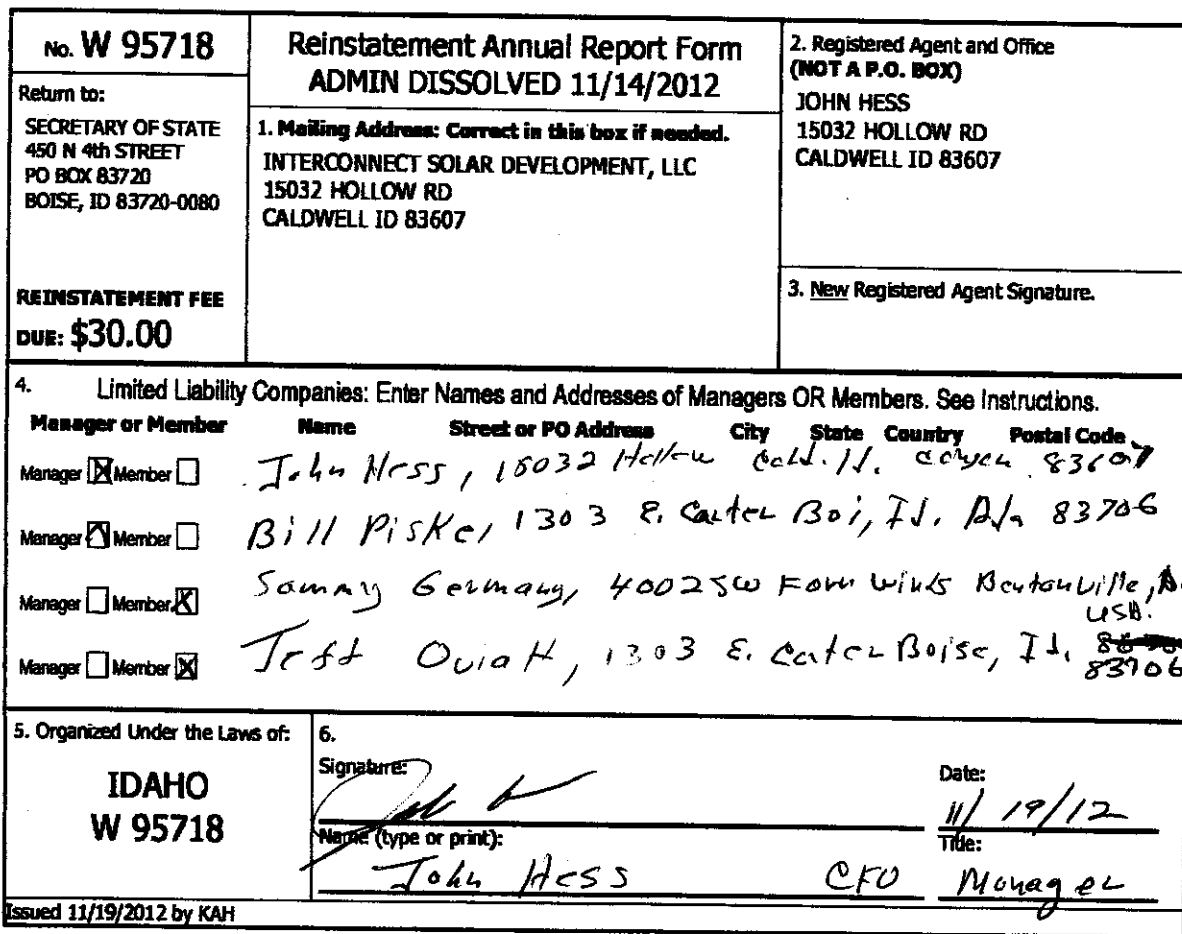 No. W 95718
Return to:
SECRETARY OF STATE
450 N 4th STREET
PO BOX 83720
BOISE, ID 83720-0080
REINSTATEMENT FEE
DUE: $30.00
Reinstatement Annual Report Form
ADMIN DISSOLVED 11/14/2012
1. Mailing Address: Correct in this box if needed.
INTERCONNECT SOLAR DEVELOPMENT, LLC
15032 HOLLOW RD
CALDWELL ID 83607
2. Registered Agent and Office
(NOT A P.O. BOX)
JOHN HESS
15032 HOLLOW RD
CALDWELL ID 83607
3. New Registered Agent Signature.
4. Limited Liability Companies: Enter Names and Addresses of Managers OR Members. See Instructions.
Manager or Member Name Street or PO Address City State Country Postal Code
Manager Member John Hess, 15032 Hollow Cald. Id. 83607
Manager Member Bill Piske, 1303 E. Carter Boi, Id. 83706
Manager Member Sammy Germany, 4002 SW Four Winds Bentonville,
USA.
Manager Member Jeff Oviatt, 1303 E. Carter Boise, Id.
83706
5. Organized Under the Laws of:
IDAHO
W 95718
6.
Signature:
Date:
11/19/12
Name (type or print):
Title:
John Hess CFO Manager
Issued 11/19/2012 by KAH